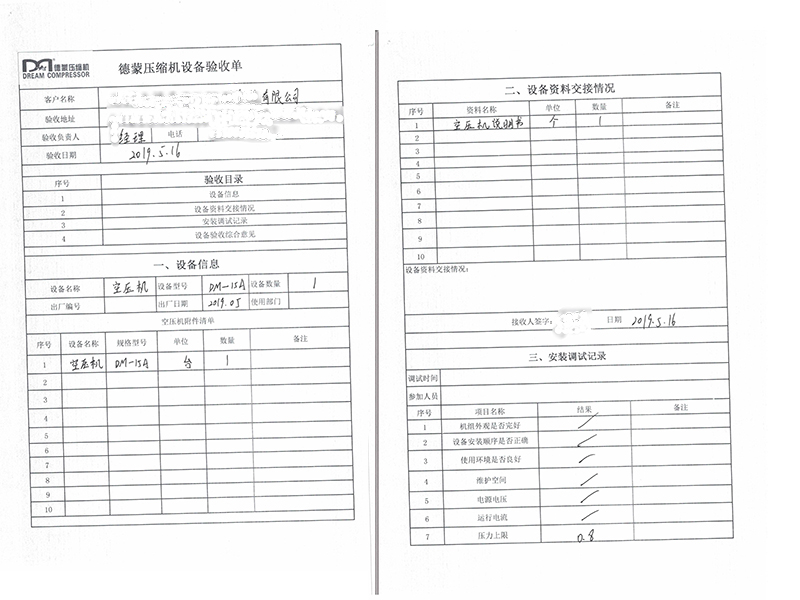 德蒙压缩机
DREAM COMPRESSOR
德蒙压缩机设备验收单
客户名称 有限公司
验收地址
验收负责人 经理 电话
验收日期 2019.5.16
序号 验收目录
1 设备信息
2 设备资料交接情况
3 安装调试记录
4 设备验收综合意见
一、设备信息
设备名称 空压机 设备型号 DM-15A 设备数量 1
出厂编号 出厂日期 2019.05 使用部门
空压机附件清单
序号 设备名称 规格型号 单位 数量 备注
1 空压机 DM-15A 台 1
2
3
4
5
6
7
8
9
10
二、设备资料交接情况
序号 资料名称 单位 数量 备注
1 空压机说明书 个 1
2
3
4
5
6
7
8
9
10
设备资料交接情况：
接收人签字： 日期 2019.5.16
三、安装调试记录
调试时间
参加人员
序号 项目名称 结果 备注
1 机组外观是否完好
2 设备安装顺序是否正确
3 使用环境是否良好
4 维护空间
5 电源电压
6 运行电流
7 压力上限 0.8